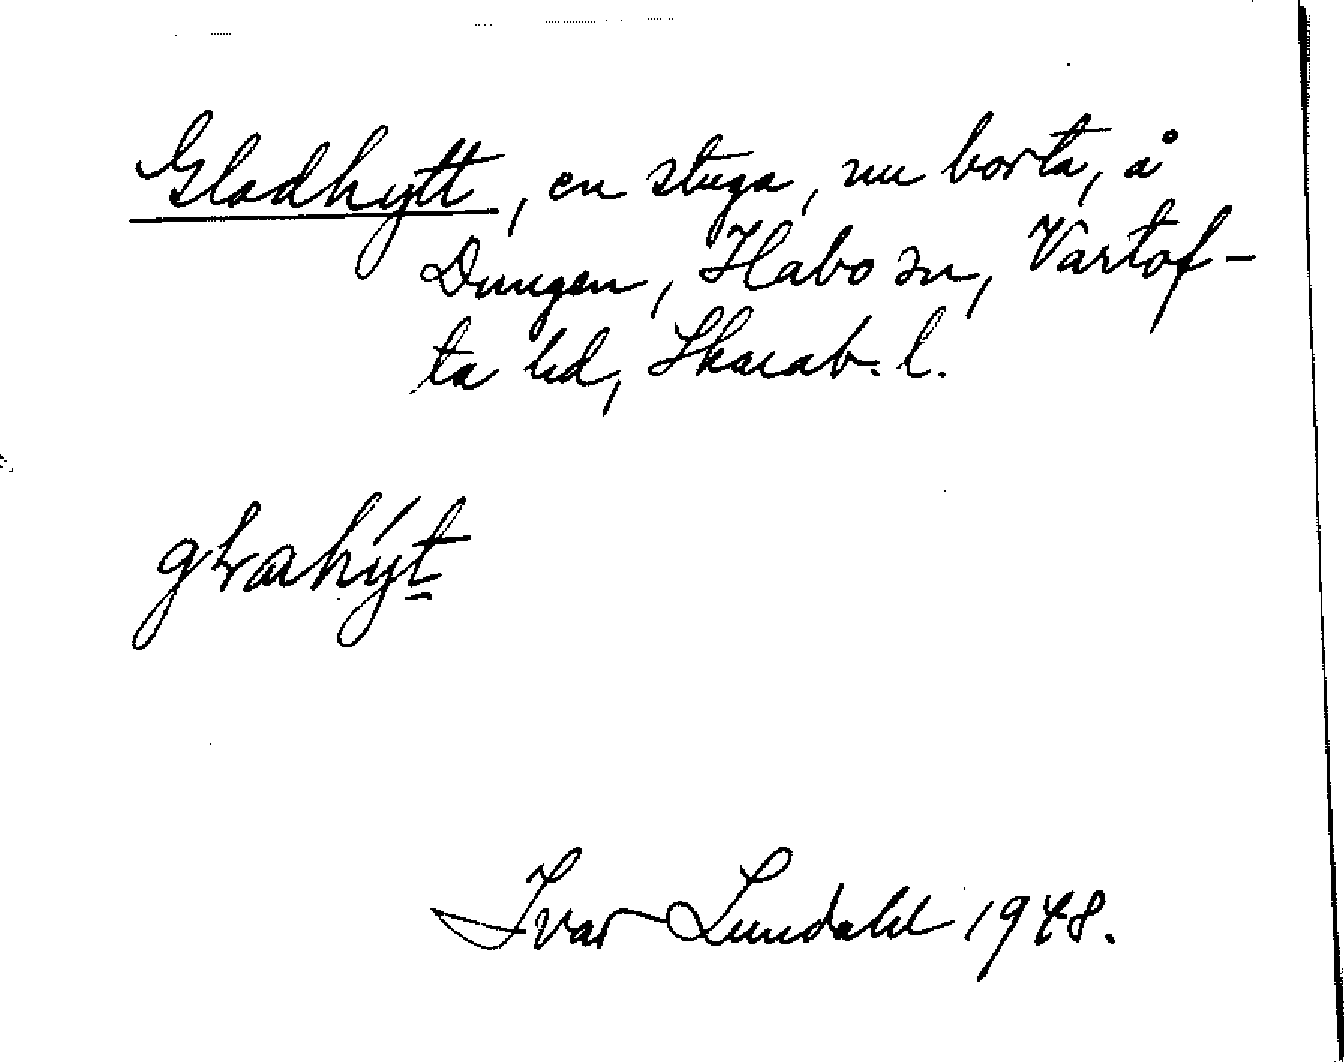 Gladhytt, en stuga, nu borta, å
Dungen, Habo sn, Vartof-
ta hd, Skarab. l.
Ivar Lundahl 1948.